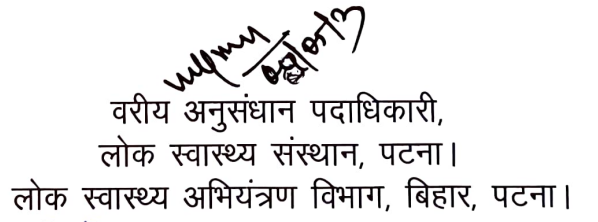 वरीय अनुसंधान पदाधिकारी,
लोक स्वास्थ्य संस्थान, पटना।
लोक स्वास्थ्य अभियंत्रण विभाग, बिहार, पटना।